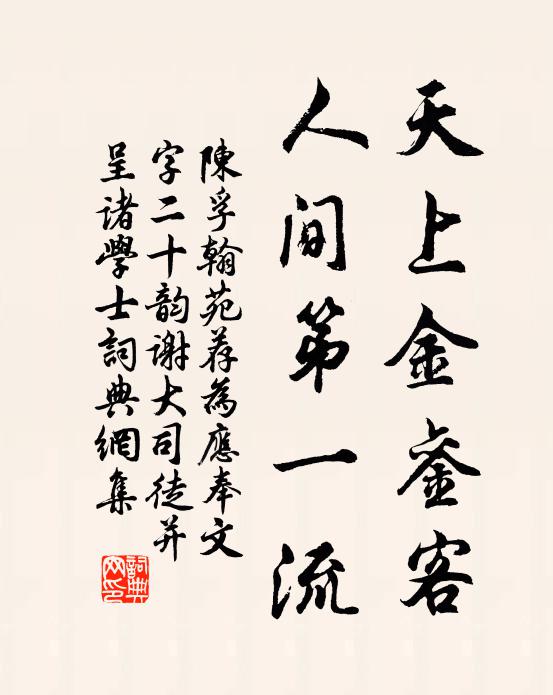 天上金銮客
人间第一流
陳孚翰苑荐為應奉文
字二十韵謝大司徒并
呈诸學士詞典網集
詞典网印